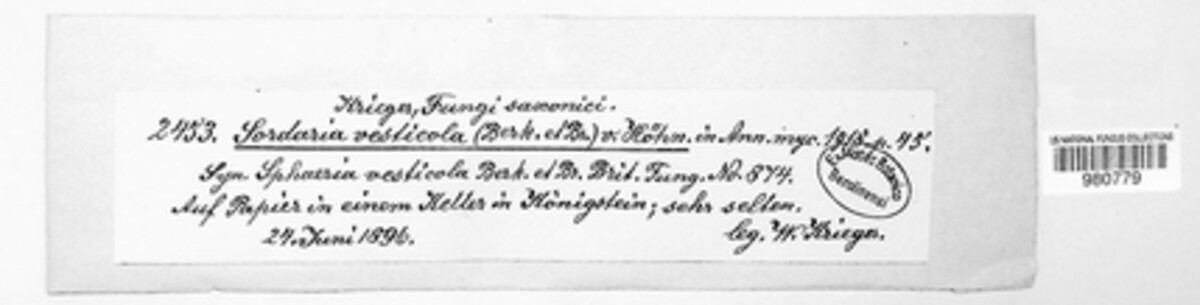 Krieger, Fungi saxonici.
2453. Sordaria vesticola (Berk. et Br.) v. Höhn. in Ann. myc. 1918 p. 45.
Syn. Sphaeria vesticola Berk. et Br. Brit. Fung. No. 874.
Auf Papier in einem Keller in Königstein; sehr selten.
24. Juni 1896. leg. W. Krieger.
Horto Botanico
Berolinensi
US NATIONAL FUNGUS COLLECTIONS
980779